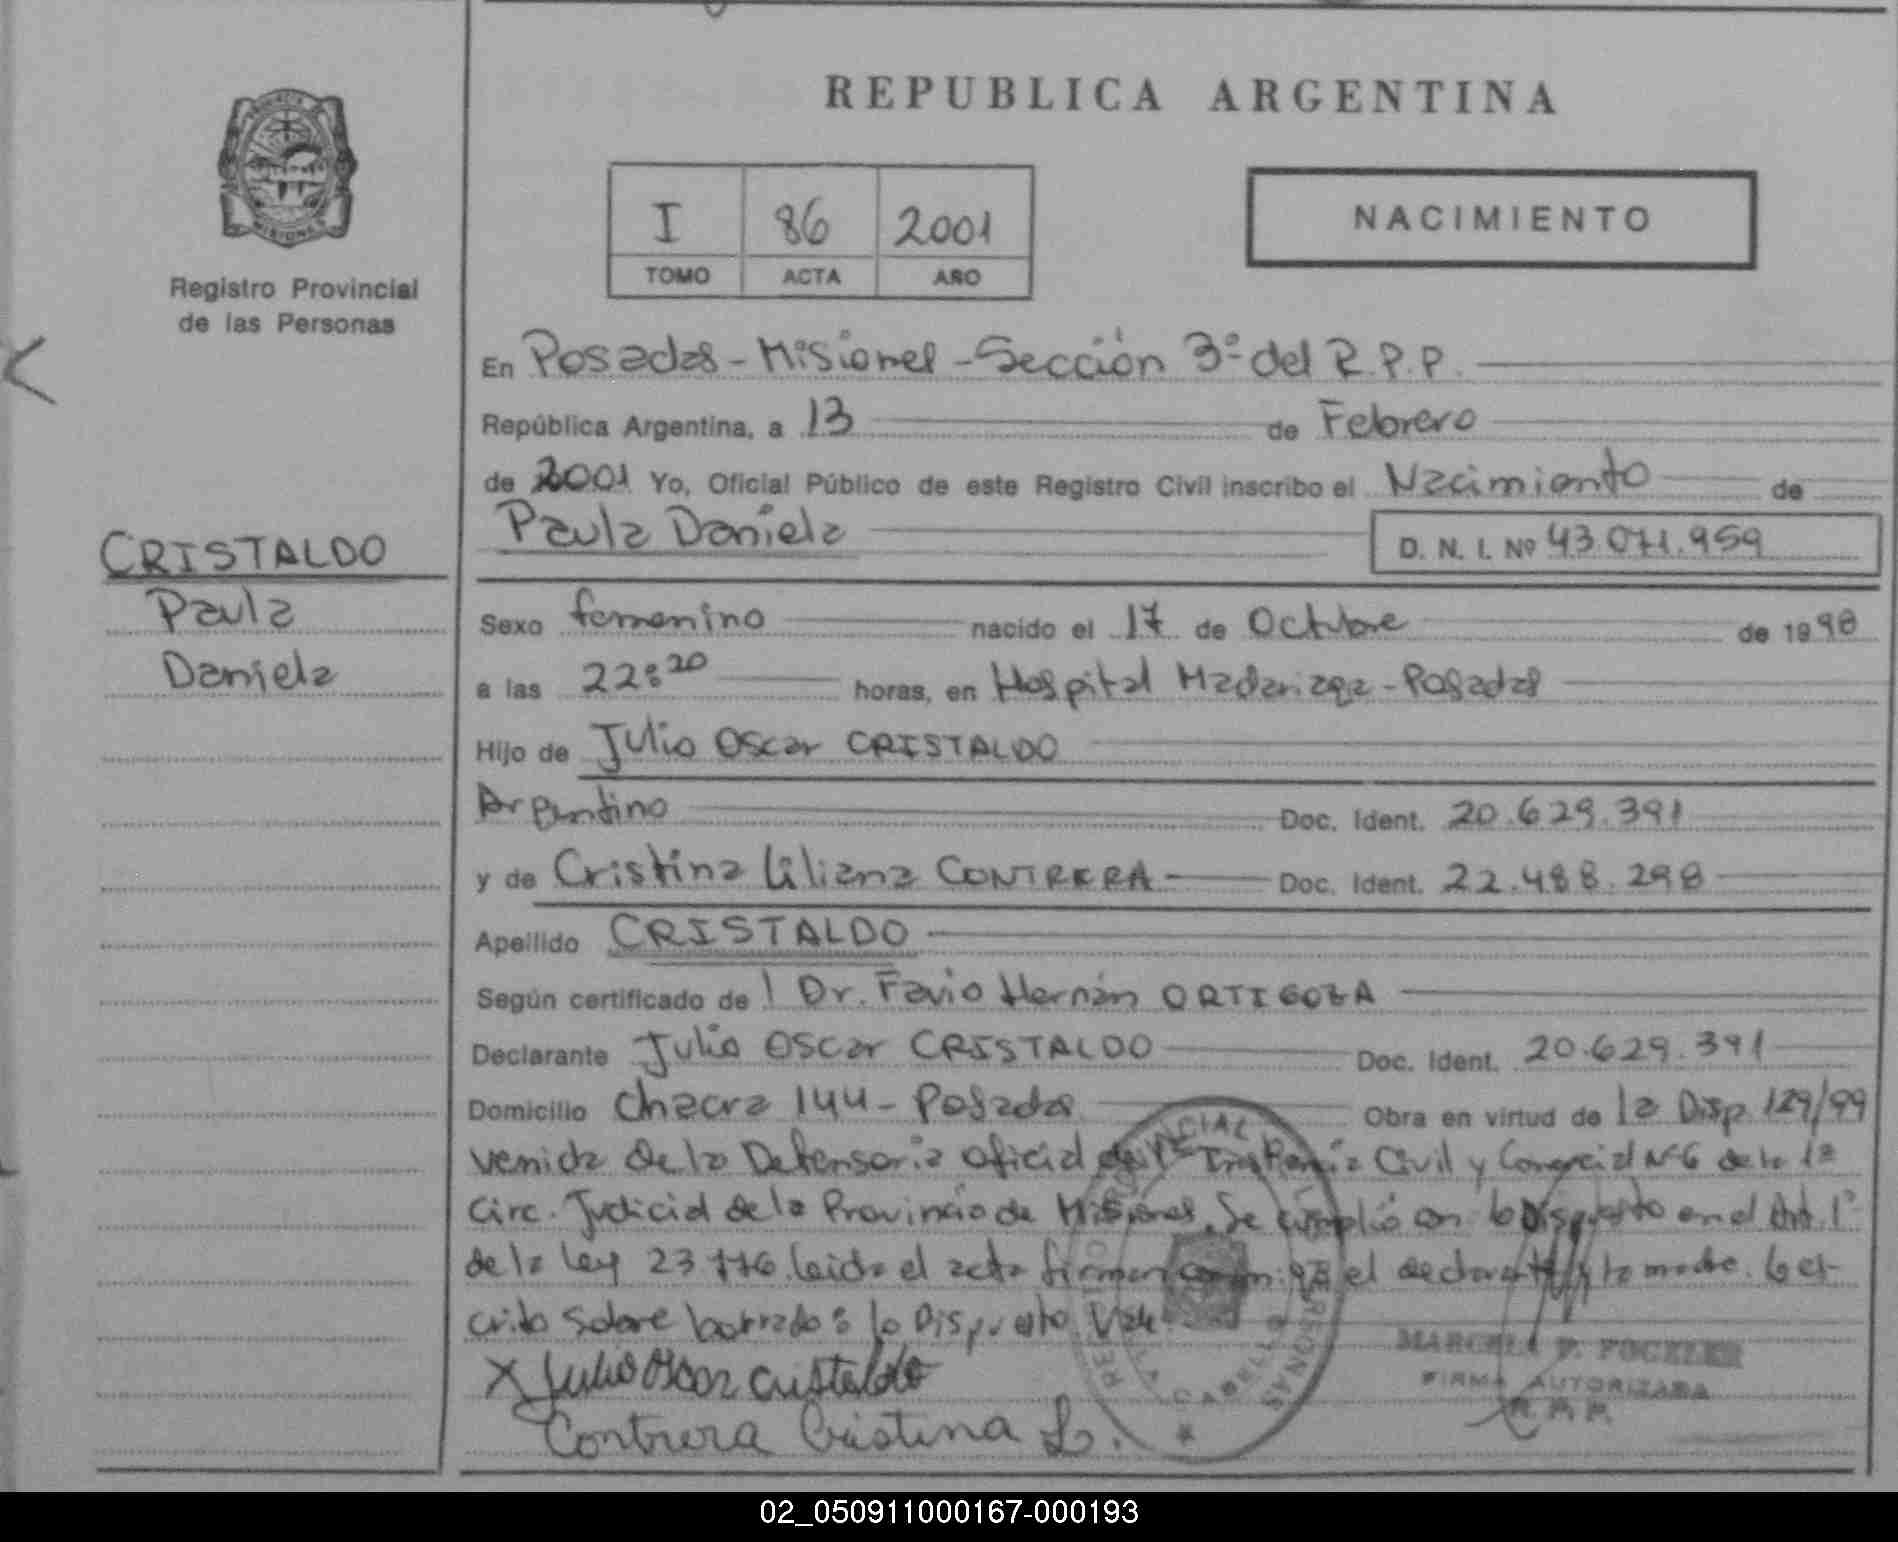 REPUBLICA ARGENTINA
PROVINCIA
MISIONES
Registro Provincial
de las Personas
I 86 2001
TOMO ACTA AÑO
NACIMIENTO
En Posadas - Misiones - Sección 3º del R.P.P.
República Argentina, a 13 de Febrero
de 2001 Yo, Oficial Público de este Registro Civil inscribo el Nacimiento de
Paula Daniela D. N. I. Nº 43.071.959
CRISTALDO
Paula
Daniela
Sexo femenino nacido el 17 de Octubre de 1998
a las 22:20 horas, en Hospital Madariaga - Posadas
Hijo de Julio Oscar CRISTALDO
Argentino Doc. Ident. 20.629.391
y de Cristina Liliana CONTRERA Doc. Ident. 22.488.298
Apellido CRISTALDO
Según certificado de Dr. Favio Hernán ORTIGOZA
Declarante Julio Oscar CRISTALDO Doc. Ident. 20.629.391
Domicilio Chacra 144 - Posadas Obra en virtud de la Disp. 129/99
venida de la Defensoría Oficial de 1ª Instancia Civil y Comercial Nº 6 de la 1ª
Circ. Judicial de la Provincia de Misiones. Se cumplió con lo Dispuesto en el Art. 1º
de la Ley 23.776. Leída el acta firman conmigo el declarante y la madre. Lo es-
crito sobre borrado: lo Dispuesto Vale
X Julio Oscar Cristaldo
Contrera Cristina L.
REGISTRO PROVINCIAL PERSONAS
CABELLO
MARCELA FOCZLER
FIRMA AUTORIZADA
R.P.P.
02_050911000167-000193